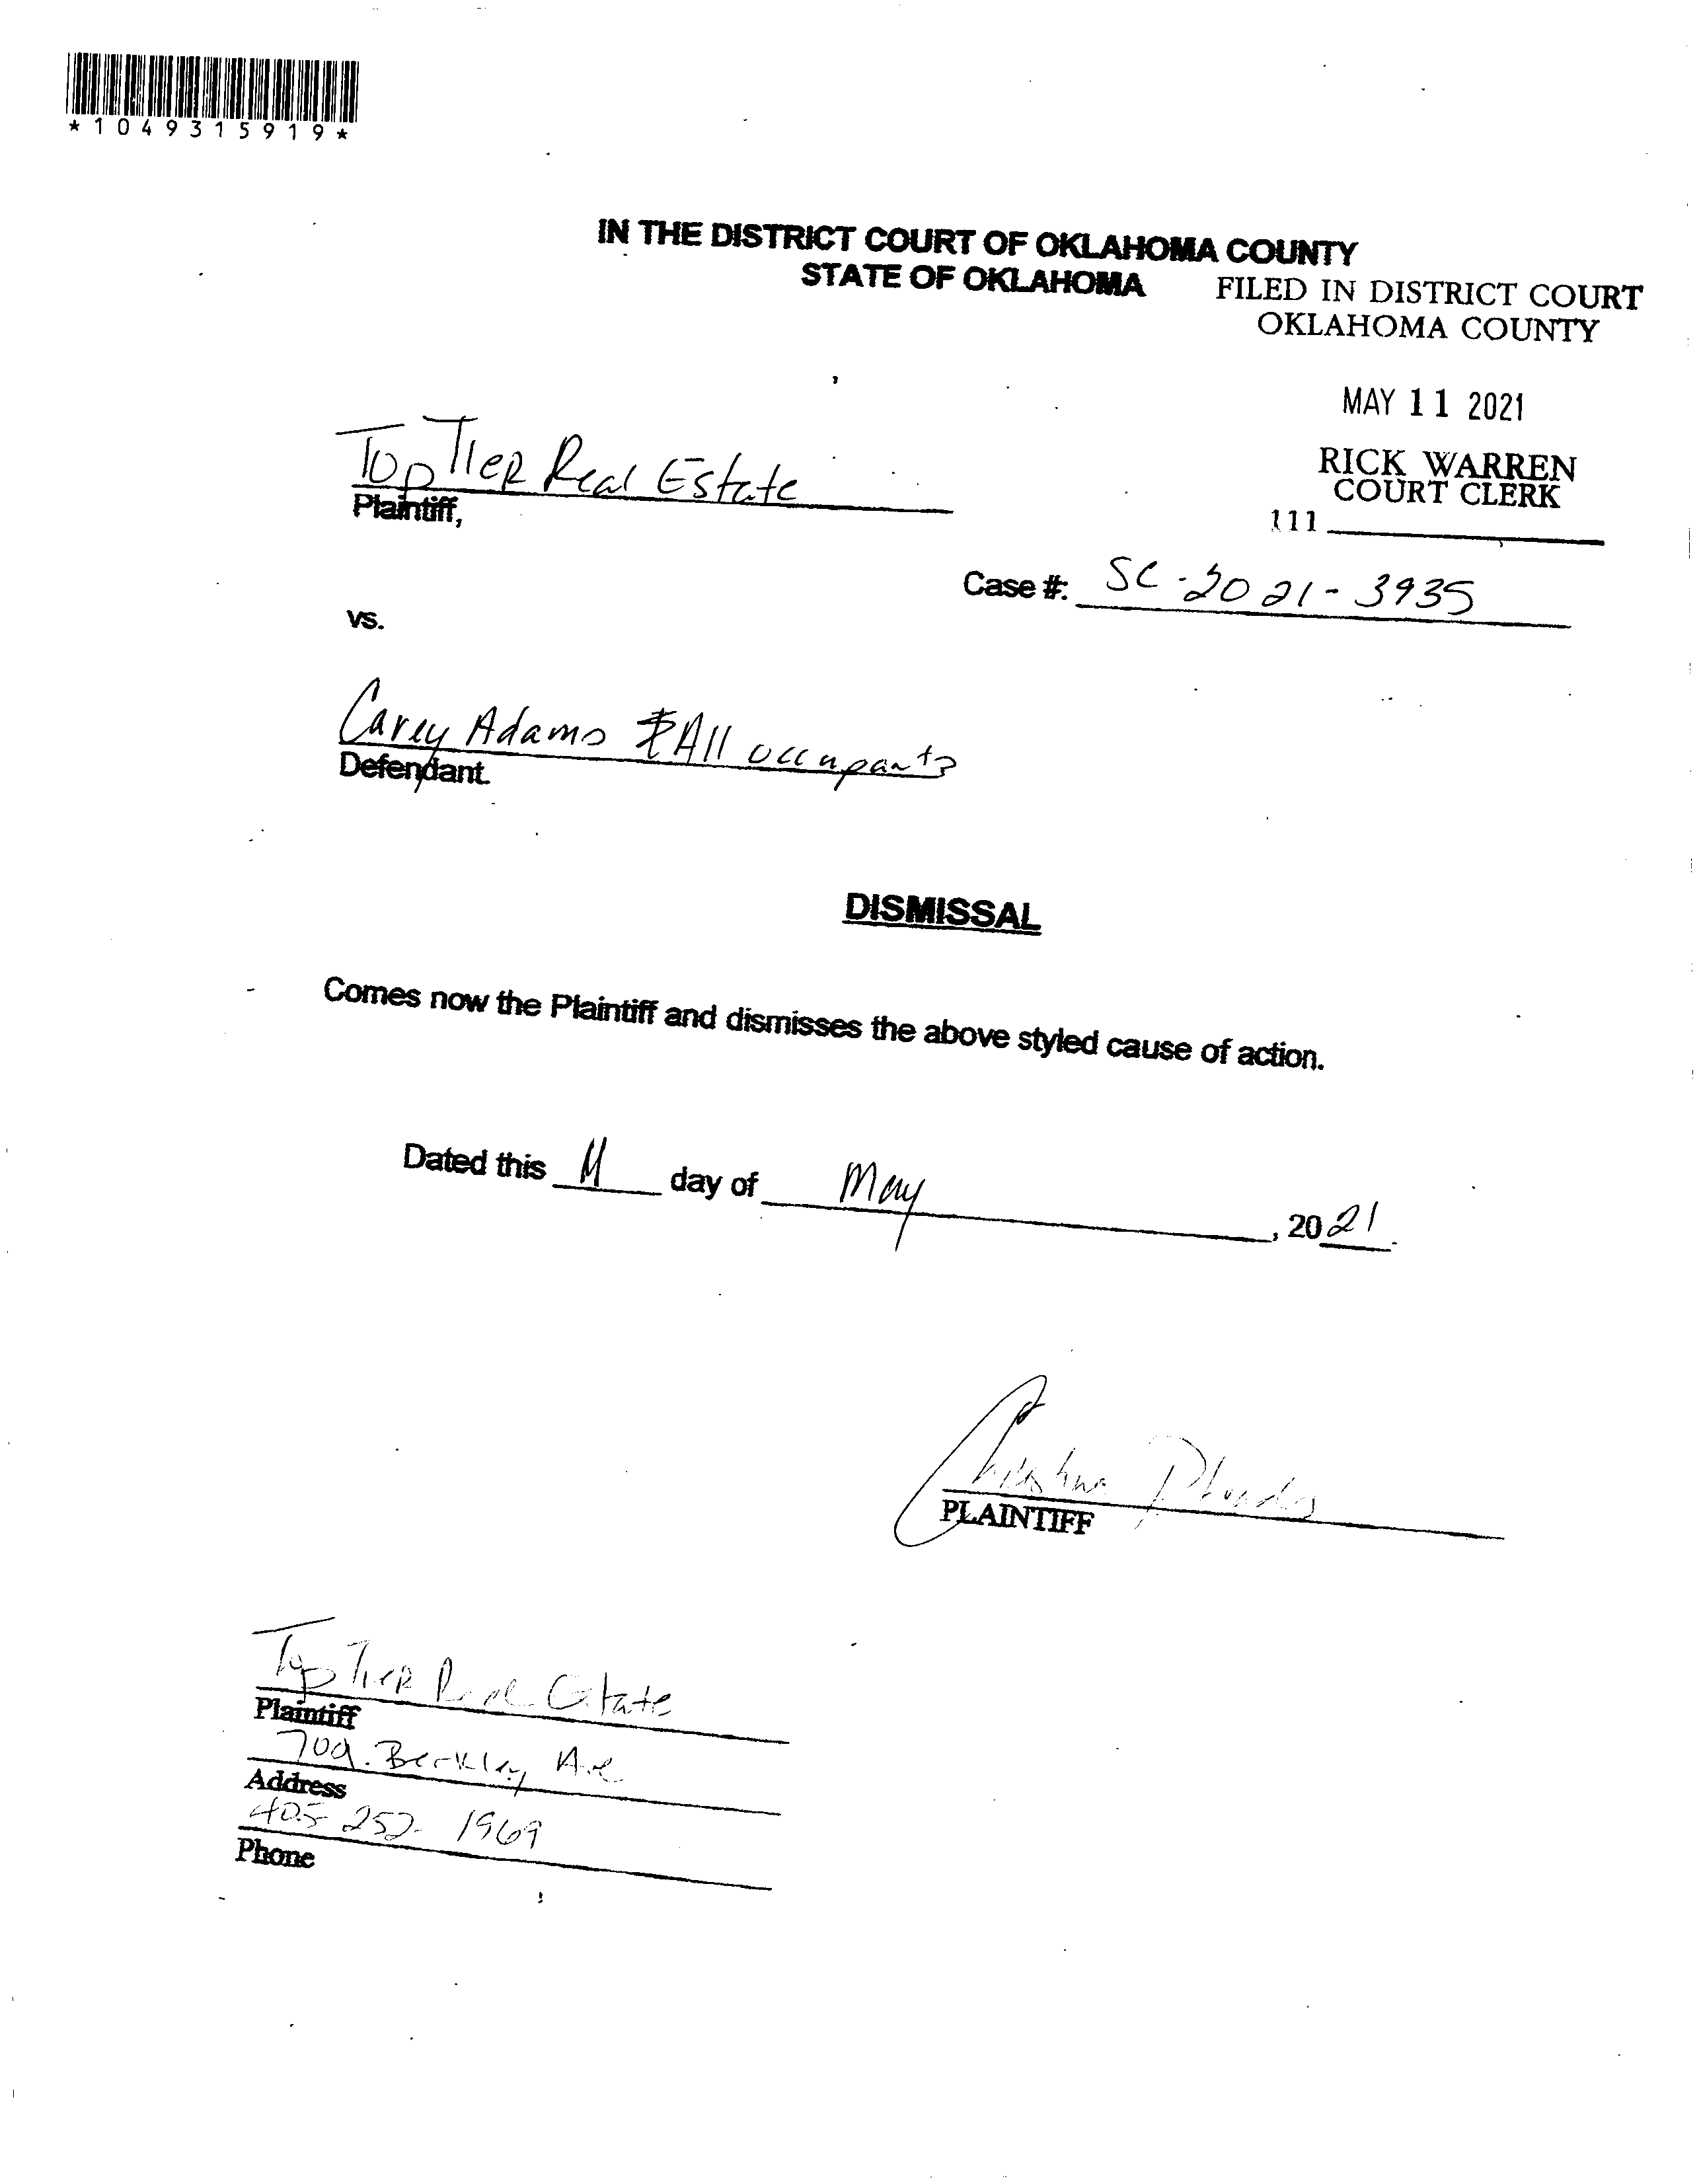 *1049315919*
IN THE DISTRICT COURT OF OKLAHOMA COUNTY
STATE OF OKLAHOMA
FILED IN DISTRICT COURT
OKLAHOMA COUNTY
MAY 11 2021
RICK WARREN
COURT CLERK
111
Top Tier Real Estate
Plaintiff,
Case #: SC-2021-3935
vs.
Carey Adams & All occupants
Defendant.
DISMISSAL
Comes now the Plaintiff and dismisses the above styled cause of action.
Dated this 11 day of May, 2021.
PLAINTIFF
Top Tier Real Estate
Plaintiff
Berkley Ave
Address
405 252-1969
Phone